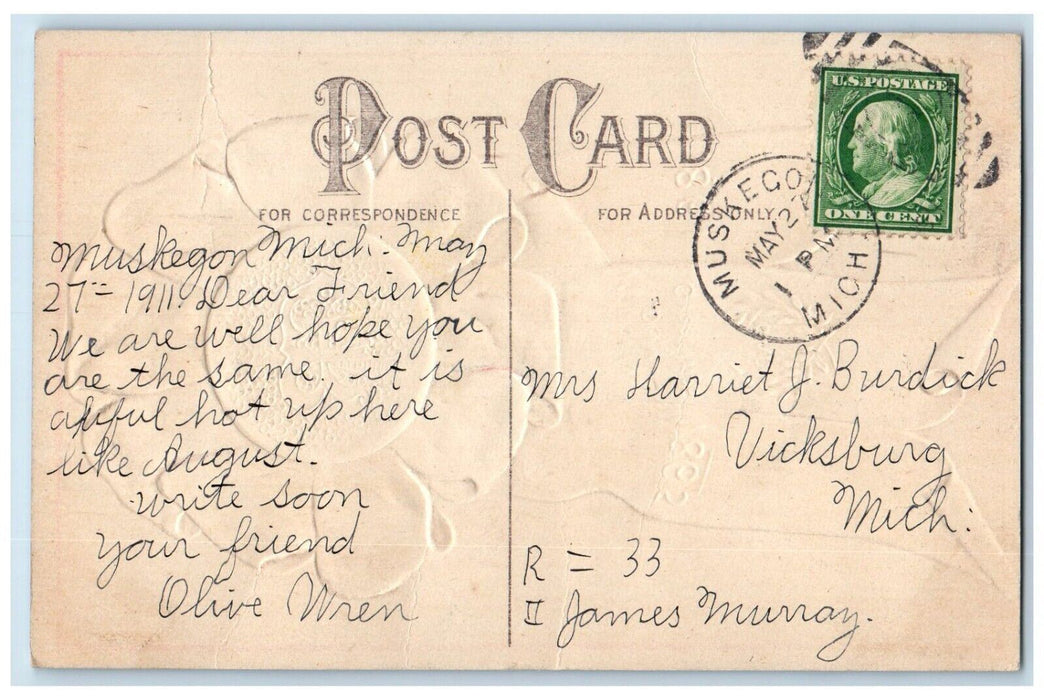 POST CARD
FOR CORRESPONDENCE
FOR ADDRESS ONLY
U.S. POSTAGE
ONE CENT
MUSKEGON
MAY 27
1 PM
MICH
Muskegon Mich: May
27= 1911. Dear Friend
We are well hope you
are the same, it is
awful hot up here
like August.
write soon
your friend
Olive Wren
Mrs Harriet J. Burdick
Vicksburg
Mich:
R = 33
II James Murray.